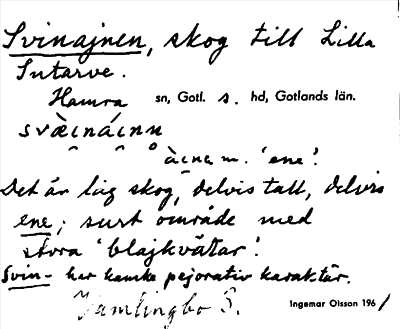 Svinajnen, skog till Lilla
Sutarve.
Hamra sn, Gotl. s. hd, Gotlands län.
svàináinn
àine m. 'ene'.
Det är låg skog, delvis tall, delvis
ene; surt område med
stora 'blajkvätar'.
Svin- har kanske pejorativ karaktär.
Vamlingbo S.
Ingemar Olsson 1961